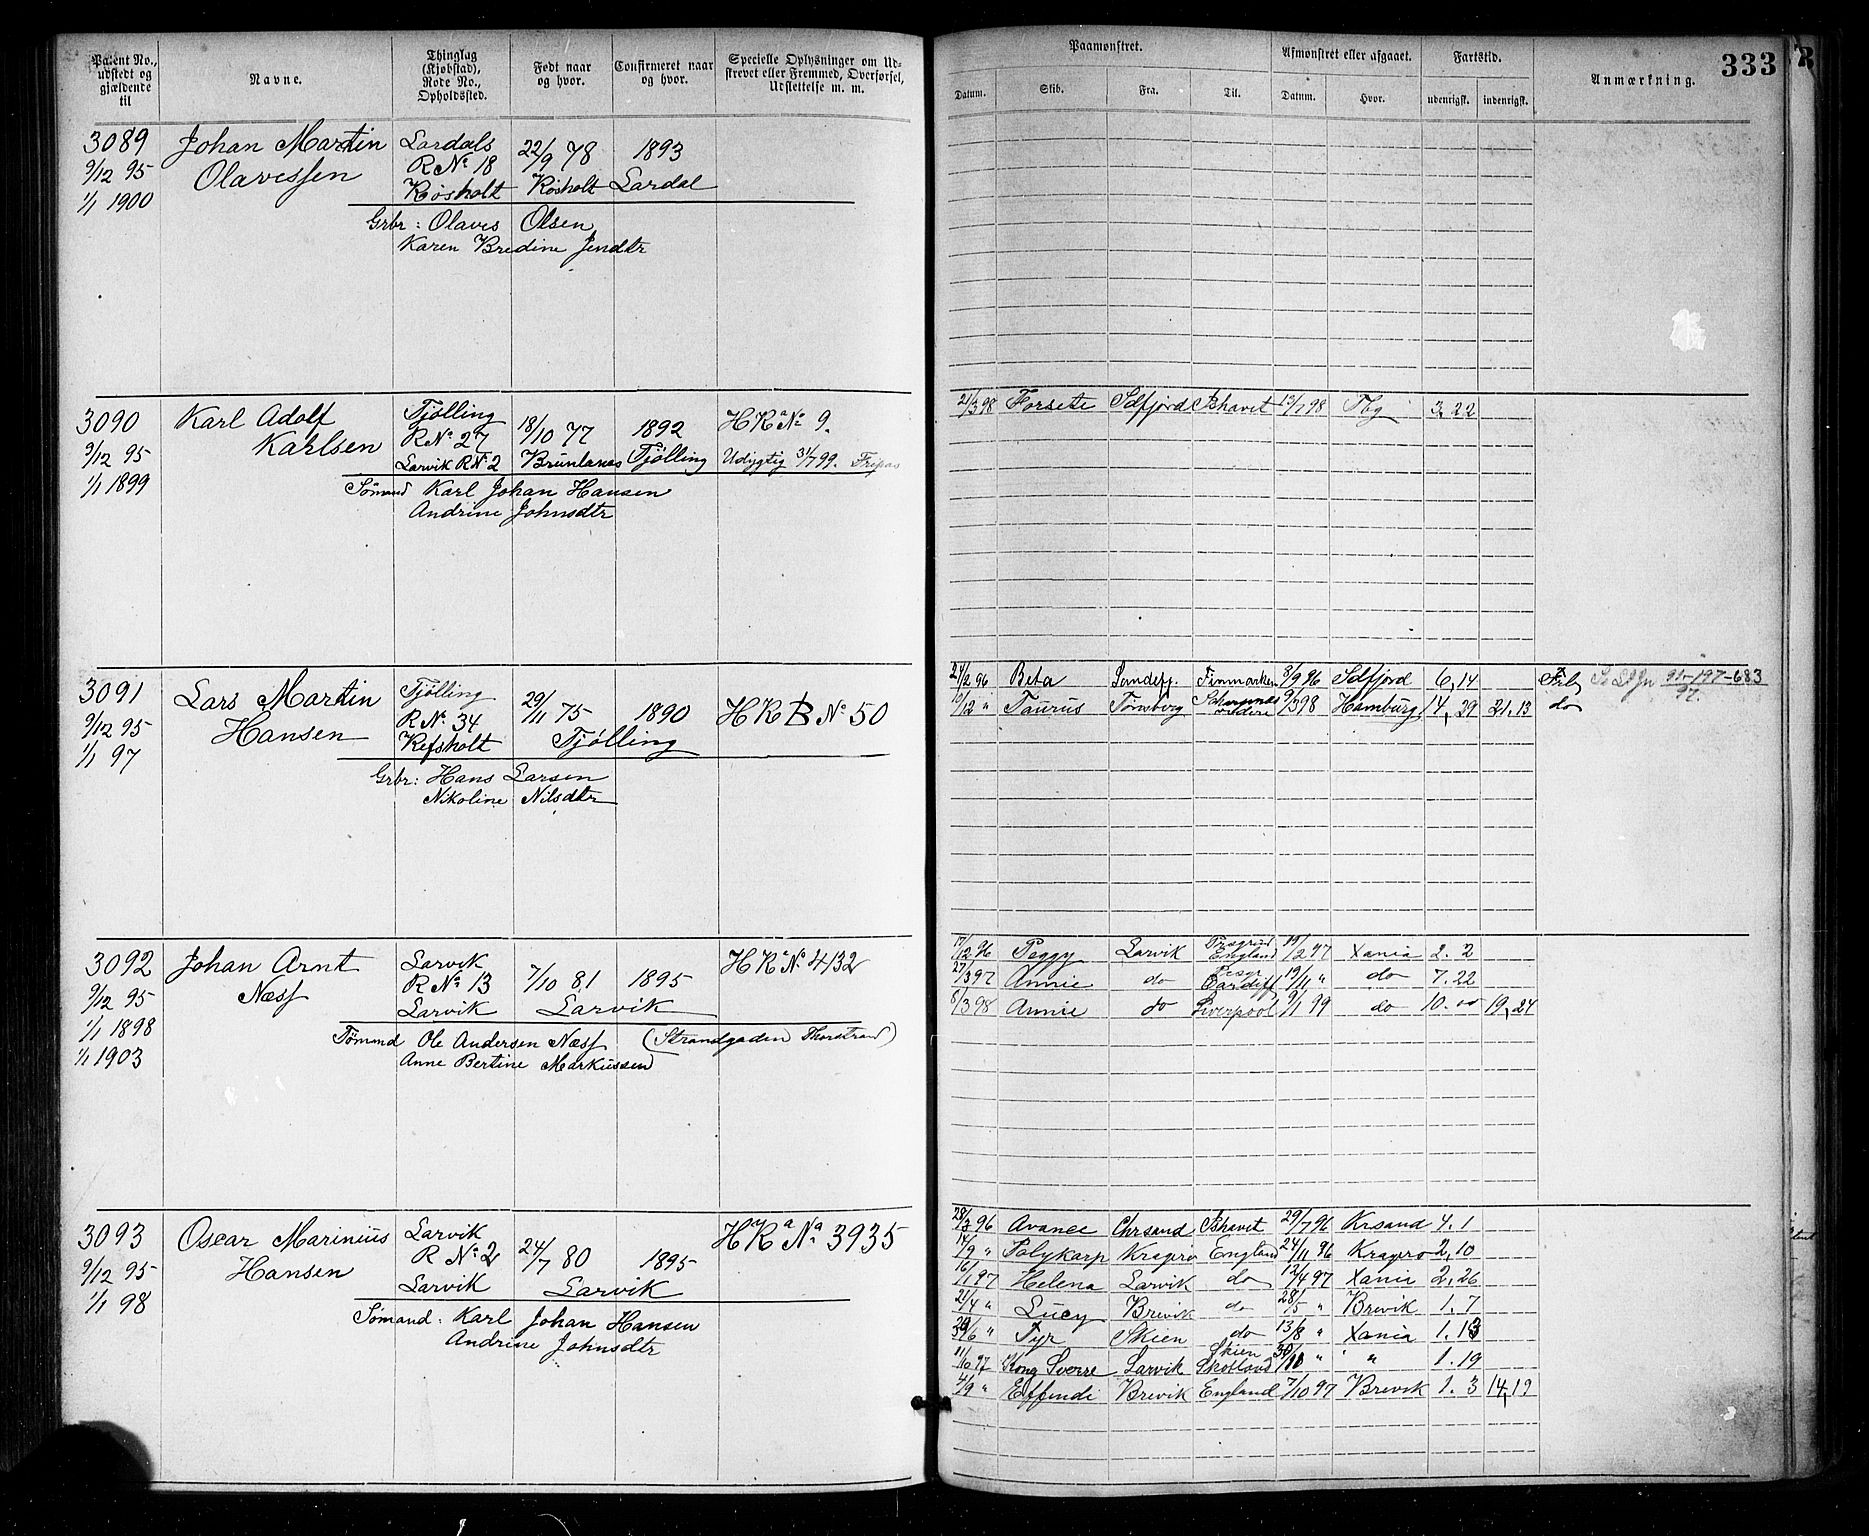 Patent No., udstedt og gjældende til
Navne.
Thinglag (Kjøbstad), Rode No., Opholdssted.
Født naar og hvor.
Confirmeret naar og hvor.
Specielle Oplysninger om Udskrevet eller Fremmed, Overførsel, Udslettelse m. m.
Paamønstret.
Afmønstret eller afgaaet.
Fartstid.
Anmærkning.
333
Datum. Skib. Fra. Til. Datum. Hvor. udenrigsk. indenrigsk.
3089 Johan Martin Lardals 22/9 78 1893
9/12 95 Olavessen R No 18
1/1 1900 Røsholt Røsholt Lardal
Grbr: Olaves Olsen
Karen Bredine Jendtr
3090 Karl Adolf Tjølling 18/10 77 1892 HRa No 9.
9/12 95 Karlsen R No 27
1/1 1899 Larvik R No 2 Brunlanes Tjølling Udygtig 31/7 99. Fripas
Sømand Karl Johan Hansen
Andrine Johnsdtr
21/3 98 Forsete Sdfjord Ishavet 13/7 98 Tbg 3,22
3091 Lars Martin Tjølling 29/11 75 1890 HRB No 50
9/12 95 Hansen R No 34
1/1 97 Refsholt Tjølling
Grbr: Hans Larsen
Nikoline Nilsdtr
24/2 96 Beta Sandefj. Finmarken 3/9 96 Sdfjord 6,14
10/12 " Taurus Tønsberg 9/3 98 Hamburg 14,29 21.13 do
91-197-683
97.
3092 Johan Arnt Larvik 7/10 81 1895 HRa No 4132
9/12 95 Næss R No 13
1/1 1898 Larvik Larvik
1/1 1903
Tømmd Ole Andersen Næss (Strandgaden Thorstrand)
Anne Bertine Markussen
17/12 96 Peggy Larvik England 19/2 97 Xania 2.2
27/3 97 Annie do Cardiff 19/11 " do 7.22
8/3 98 Annie do Liverpool 9/1 99 do 10.00 19,24
3093 Oscar Marinius Larvik 24/7 80 1895 HRa No 3935
9/12 95 Hansen R No 2
1/1 98 Larvik Larvik
Sømand: Karl Johan Hansen
Andrine Johnsdtr
28/3 96 Avance Chrsand Ishavet 29/7 96 Krsand 4.1
14/9 " Polykarp Kragerø England 24/11 96 Kragerø 2,10
16/1 97 Helena Larvik do 12/4 97 Xania 2,26
21/4 " Lucy Brevik do 28/5 " Brevik 1.7
Tyr Skien do 13/8 " Xania 1.13
Kong Sverre Larvik Skien Skotland " " 1.19
4/9 " Effendi Brevik England 7/10 97 Brevik 1.3 14,19